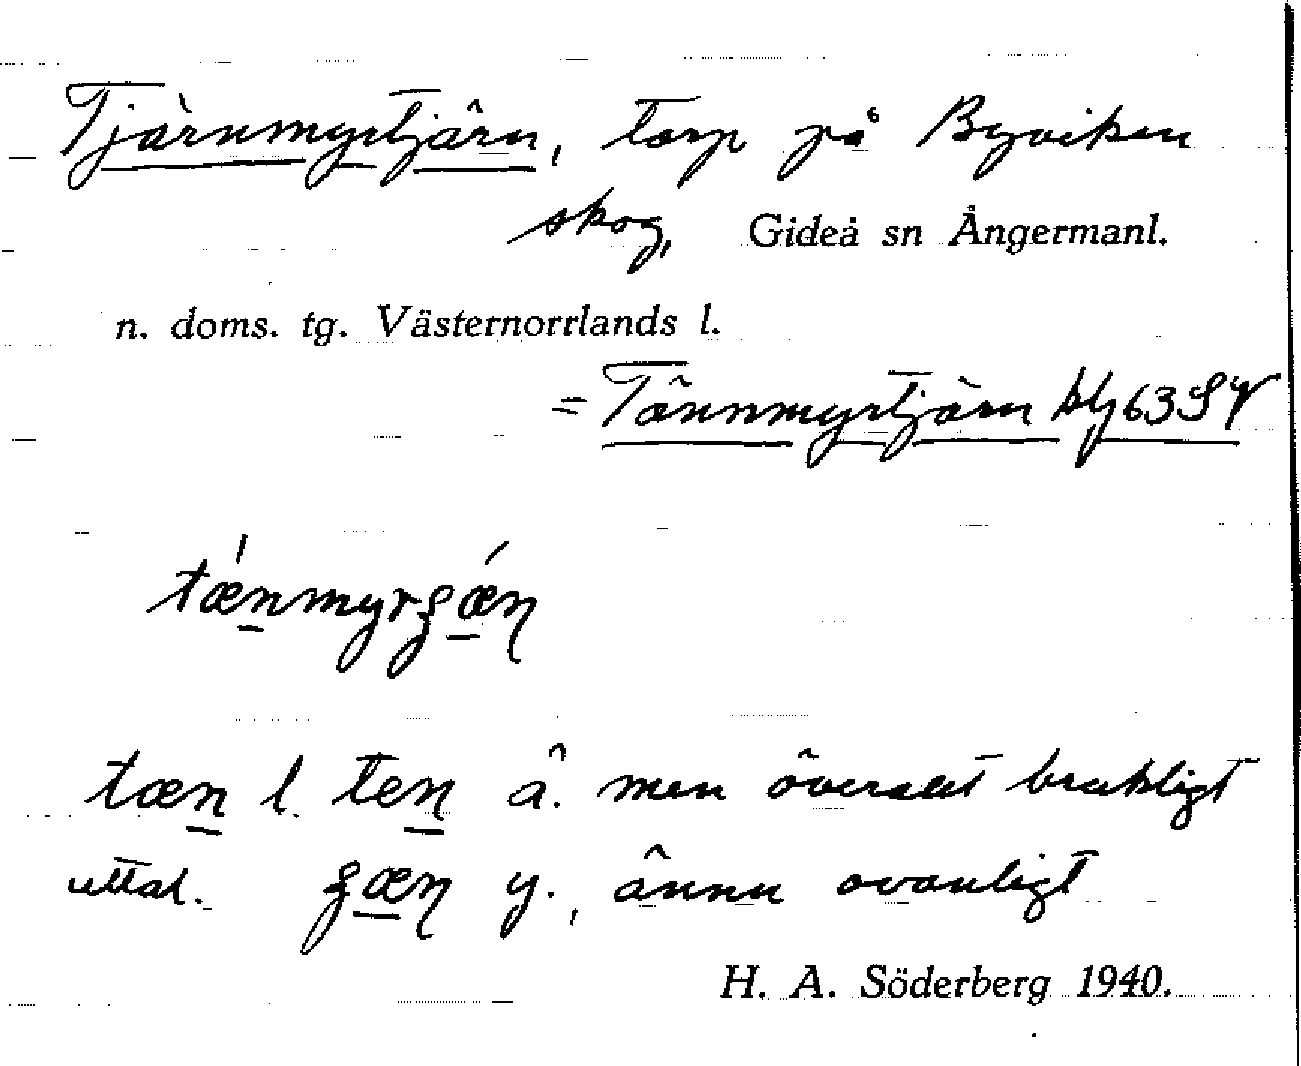 Tjärnmyrtjärn, torp på Byviken
skog, Gideå sn Ångermanl.
n. doms. tg. Västernorrlands l.
= Tännmyrtjärn bl 63 SV
tǽnmyrʃǽɳ
tæn l. ten ä. men överallt brukligt
uttal. ʃæɳ y., ännu ovanligt
H. A. Söderberg 1940.